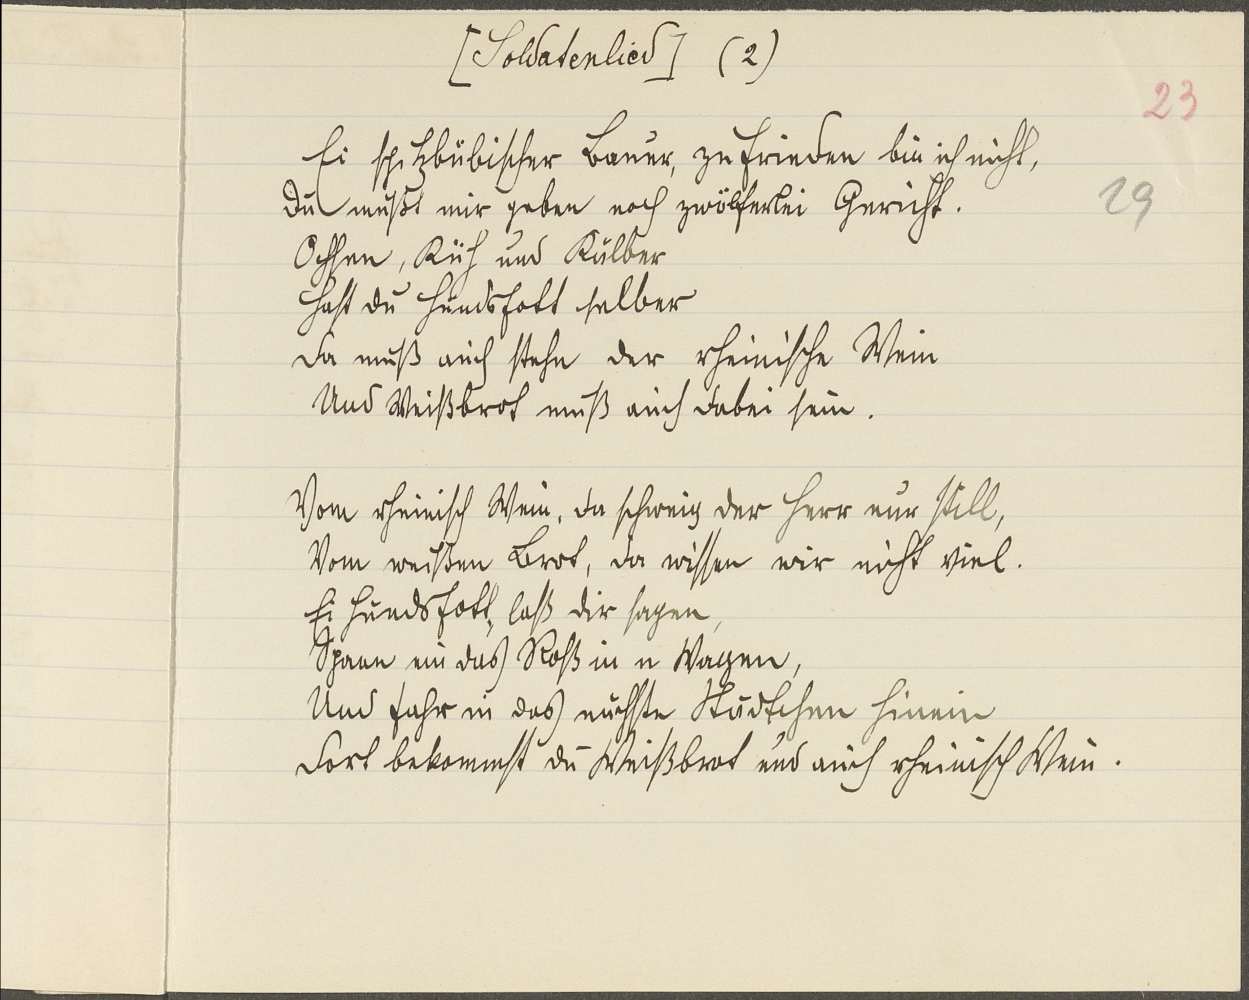 [Soldatenlied] (2)
23
Ei spitzbübischer Bauer, zufrieden bin ich nicht,
Du mußt mir geben noch zwölferlei Gericht.
29
Ochsen, Küh und Kälber
Hast du Hundsfott selber
Da muß auch stehn der rheinische Wein
Und Weißbrot muß auch dabei sein.
Vom rheinisch Wein, da schweig der Herr nur still,
Vom weißen Brot, da wissen wir nicht viel.
Ei Hundsfott, laß dir sagen,
Spann ein das Roß in n Wagen,
Und fahr in das nächste Städtchen hinein
Dort bekommst du Weißbrot und auch rheinisch Wein.